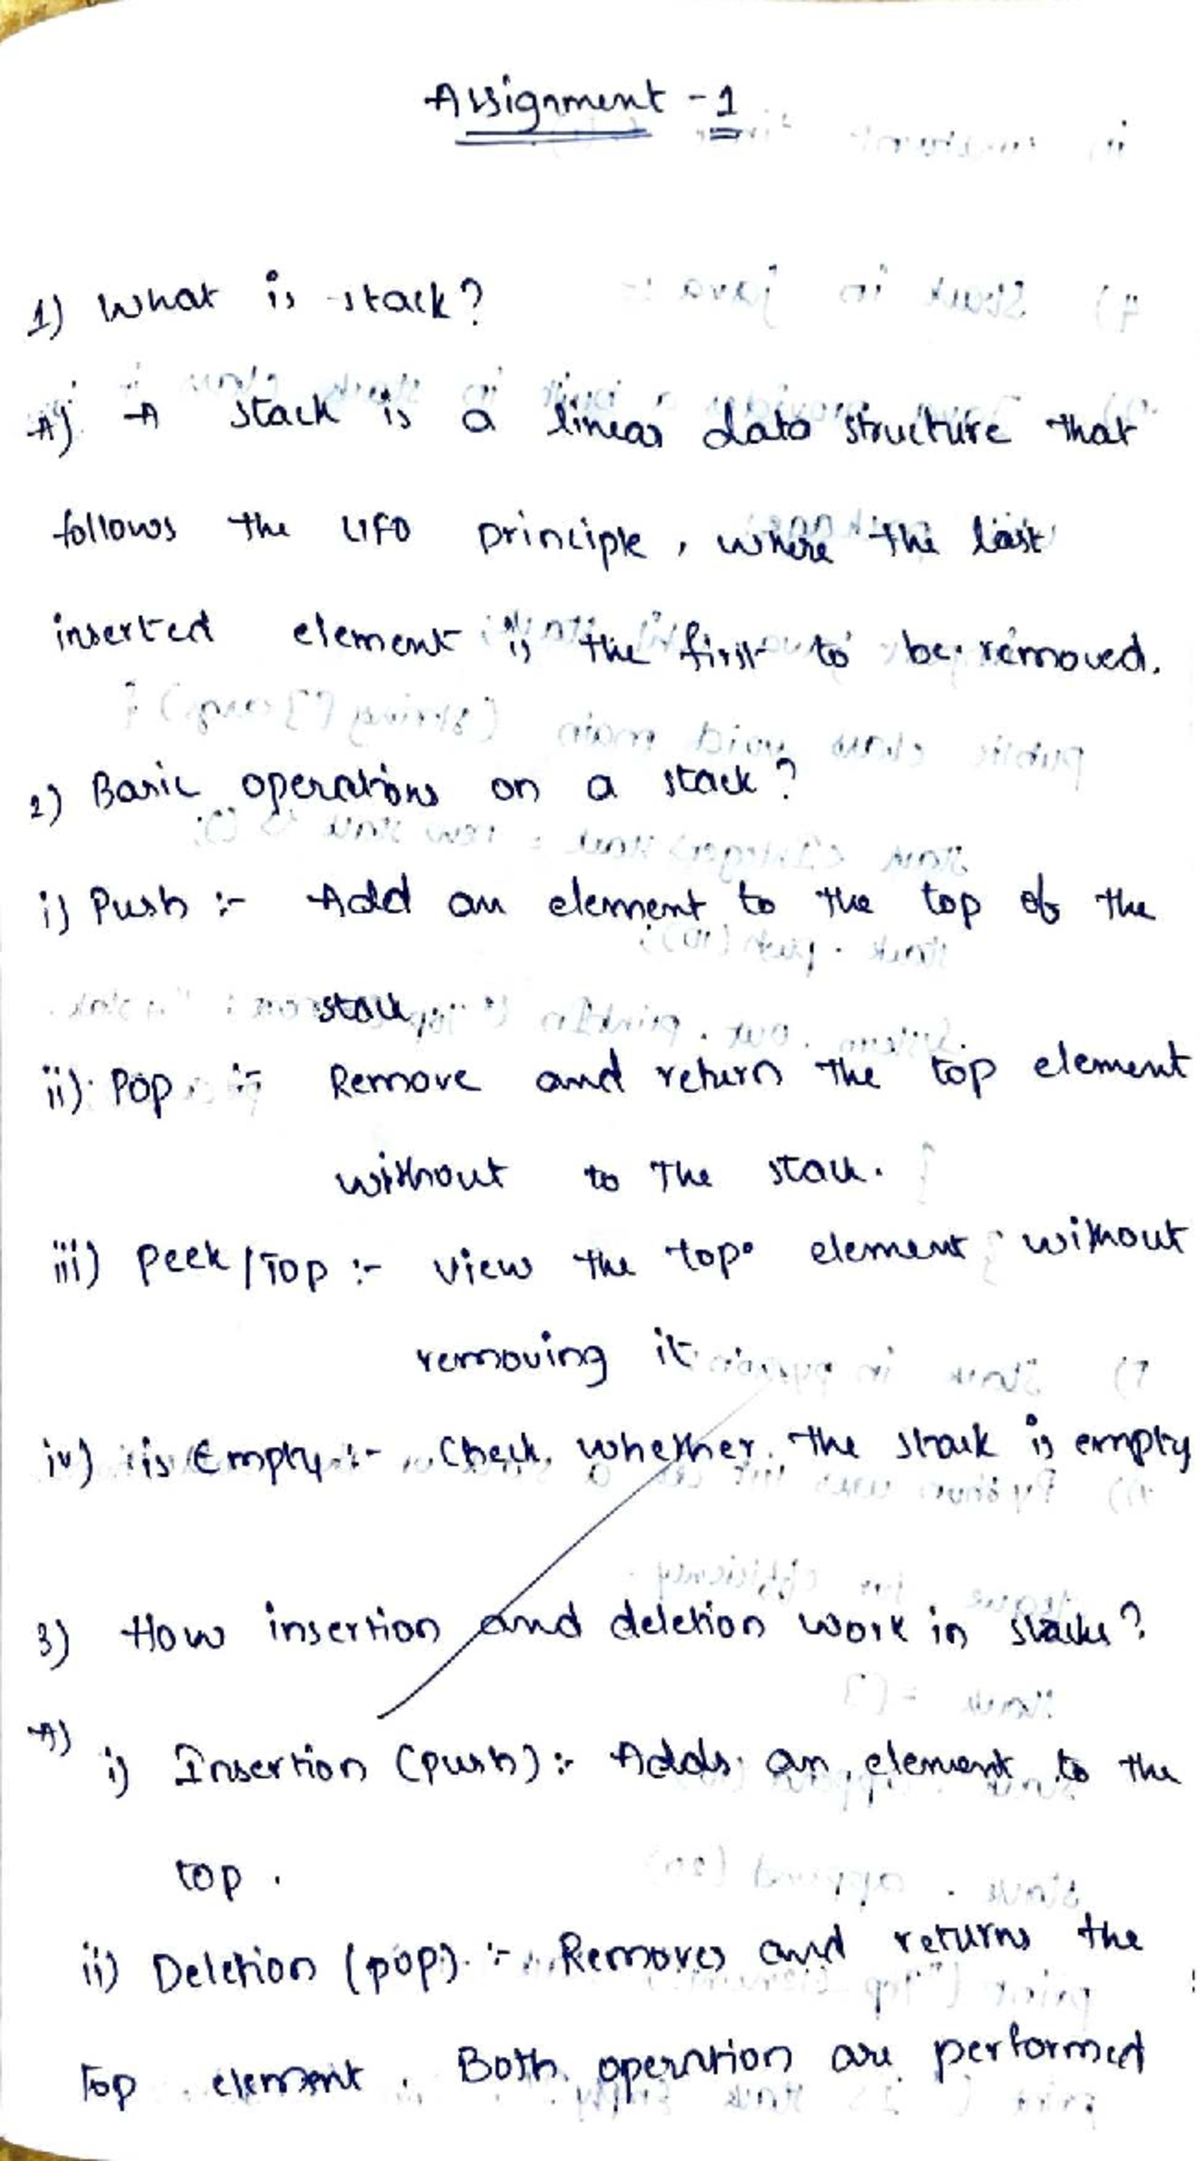 Assignment - 1
1) What is stack?
A) A stack is a linear data structure that
follows the LIFO principle, where the last
inserted element is the first to be removed.
2) Basic operations on a stack?
i) Push :- Add an element to the top of the
stack.
ii) Pop :- Remove and return the top element
without to the stack.
iii) Peek/Top :- View the top element without
removing it.
iv) is Empty :- Check whether the stack is empty
3) How insertion and deletion work in stacks?
A) i) Insertion (push) :- Adds an element to the
top.
ii) Deletion (pop) :- Removes and returns the
Top element. Both operation are performed